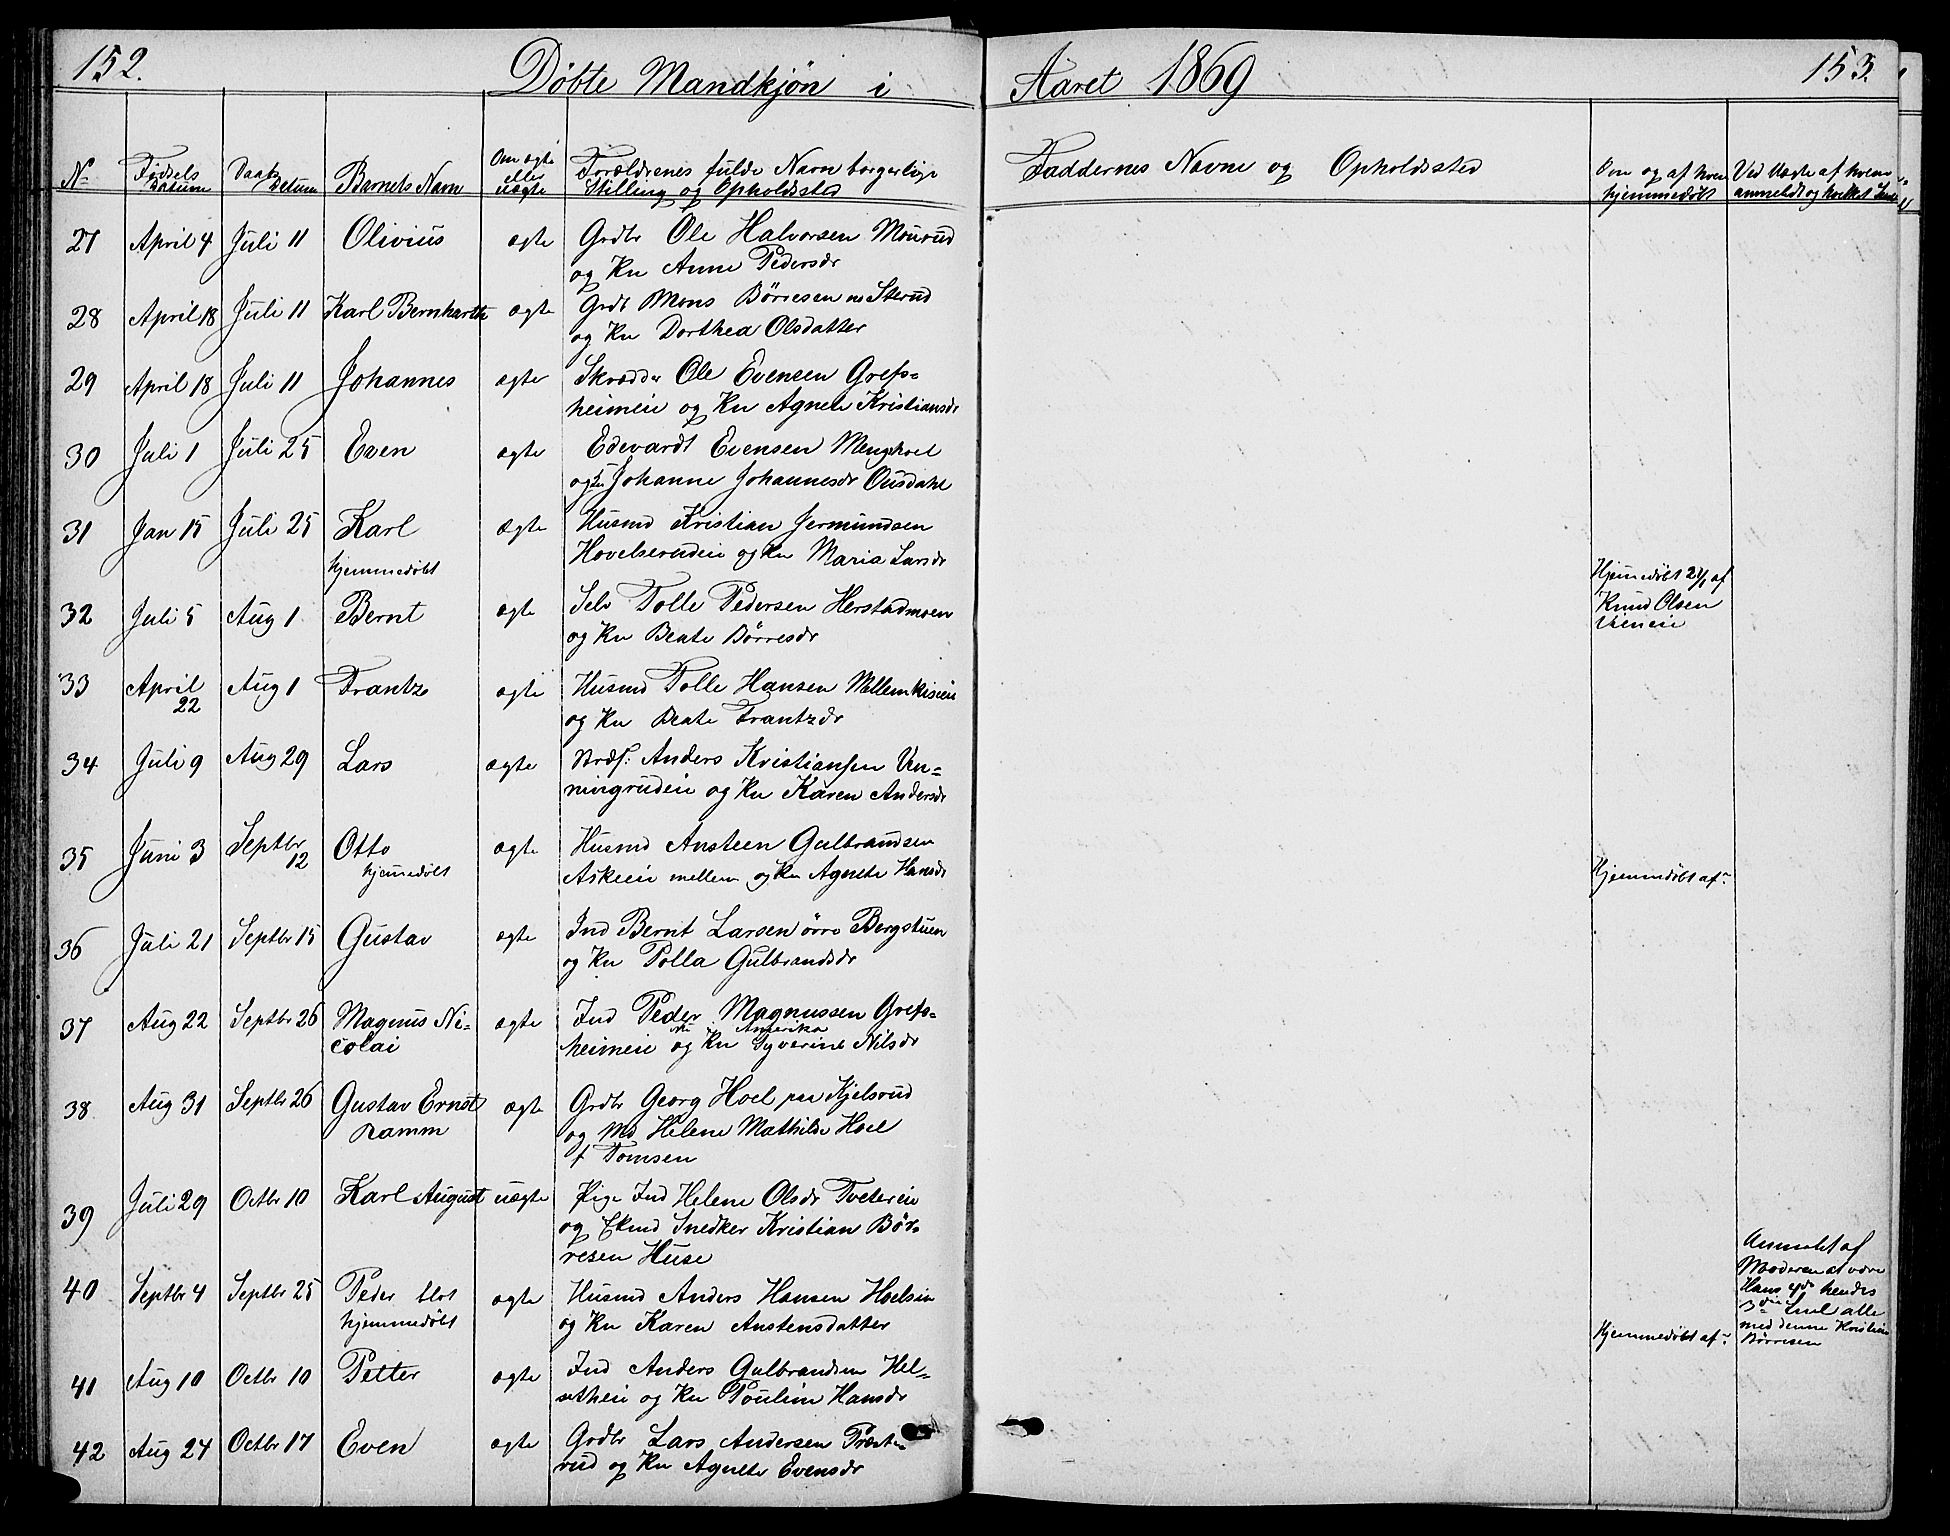 152.
Døbte Mandkjøn i
Aaret 1869
153.
No
Fødsels Datum
Daabs Datum
Barnets Navn
Om ægte eller uægte
Forældrenes fulde Navn borgerlige
Stilling og Opholdssted
Faddernes Navne og Opholdssted
Om og af hvem
hjemmedøbt
Ved Uægte af hvem
anmeldt og hvilket
27 April 4 Juli 11 Olivius ægte Grdbr Ole Halvorsen Mourud
og Kn Anne Pedersdr
28 April 18 Juli 11 Karl Bernharth ægte Grdb Mons Børresen Sterud
og Kn Dorthea Olsdatter
29 April 18 Juli 11 Johannes ægte Skrædder Ole Evensen Grefs=
heimeie og Kn Agnete Kristiansdr
30 Juli 1 Juli 25 Even ægte Edevardt Evensen Mengshoel
og Kn Johanne Johannesdr Ousdahl
31 Jan 15 Juli 25 Karl ægte Husmd Kristian Jermundsen
hjemmedøbt Hovelsrudeie og Kn Maria Larsdr
Hjemmedøbt af
Knud Olsen
32 Juli 5 Aug 1 Bernt ægte Selv Tolle Pedersen Herstadmoen
og Kn Beate Børresdr
33 April 22 Aug 1 Frantz ægte Husmd Tolle Hansen Mellemkiseie
og Kn Beate Frantzdr
34 Juli 9 Aug 29 Lars ægte Anders Kristiansen Ven=
ningrudeie og Kn Karen Andersdr
35 Juni 3 Septbr 12 Otto ægte Husmd Ansteen Gulbrandsen
hjemmedøbt Askeeie mellem og Kn Agnete Hansdr
Hjemmedøbt af
36 Juli 21 Septbr 15 Gustav ægte Ind Bernt Larsen øvre Bergstuen
og Kn Polla Gulbrandsdr
37 Aug 22 Septbr 26 Magnus Ni= ægte Ind Peder Magnussen Grefs=
Amerika
colai heimeie og Kn Syverine Nilsdr
38 Aug 31 Septbr 26 Gustav Ernst ægte Grdbr Georg Hoel paa Kjelsrud
Ramm og Md Helene Mathilde Hoel
f Tomsen
39 Juli 29 Octbr 10 Karl August uægte Pige Ind Helene Olsdr Tvetereie
og Snedker Kristian Bør=
resen Huse
Anmeldt af
Moderen at være
Hans og hendes
3die alle
med denne Kristian
Børresen
40 Septbr 4 Septbr 25 Peder blev ægte Husmd Anders Hansen Hoelseie
hjemmedøbt og Kn Karen Anstensdatter
Hjemmedøbt af
41 Aug 10 Octbr 10 Petter ægte Ind Anders Gulbrandsen Hel=
setheie og Kn Pouline Hansdr
42 Aug 24 Octbr 17 Even ægte Grdbr Lars Andersen Præste
rud og Kn Agnete Evensdr